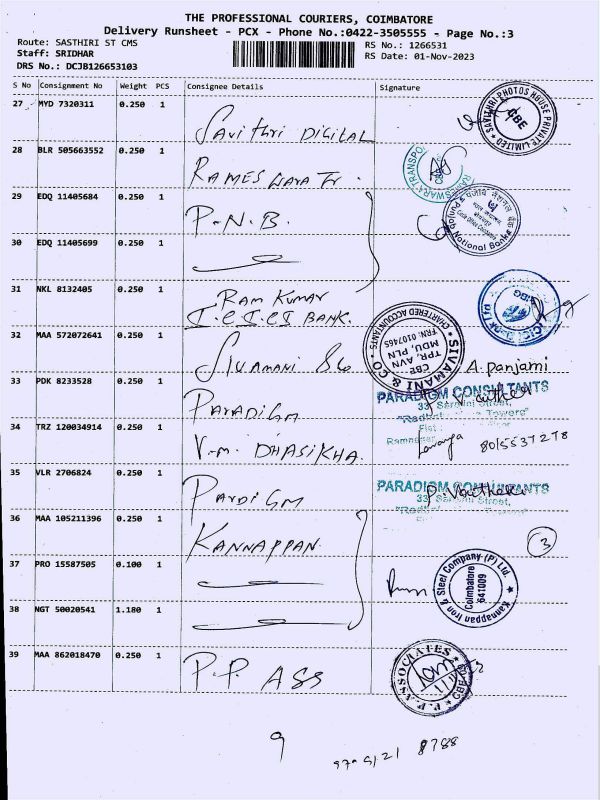 THE PROFESSIONAL COURIERS, COIMBATORE
Delivery Runsheet - PCX - Phone No.:0422-3505555 - Page No.:3
Route: SASTHIRI ST CMS
RS No.: 1266531
Staff: SRIDHAR
RS Date: 01-Nov-2023
DRS No.: DCJB126653103
S No Consignment No Weight PCS Consignee Details Signature
27 MYD 7320311 0.250 1 Savithri DIGITAL
SAVITHRI PHOTOS HOUSE PRIVATE LIMITED
CBE
28 BLR 505663552 0.250 1 RAMESWARA Tr.
RAMESWARA TRANSPO
29 EDQ 11405684 0.250 1 P.N.B.
Punjab National Bank
30 EDQ 11405699 0.250 1
31 NKL 8132405 0.250 1 RAM KUMAR
I.C.I.C.I BANK.
32 MAA 572072641 0.250 1 SIVAMANI &Co
SIVAMANI & CO
CHARTERED ACCOUNTANTS
FRN: 010746S
MDU, PLN
TPR, AVN
CBE
A.panjami
33 PDK 8233528 0.250 1 PARADIGM
PARADIGM CONSULTANTS
34 TRZ 120034914 0.250 1 V.M. DHASIKHA.
Lavanya 8015537278
35 VLR 2706824 0.250 1 PARDIGM
PARADIGM CONSULTANTS
36 MAA 105211396 0.250 1 KANNAPPAN
3
37 PRO 15587505 0.100 1
Kannappan Iron & Steel Company (P) Ltd.
Coimbatore
641009
38 NGT 50020541 1.180 1
39 MAA 862018470 0.250 1 P.P. ASS
P.P. ASSOCIATES
CBE
9
8788